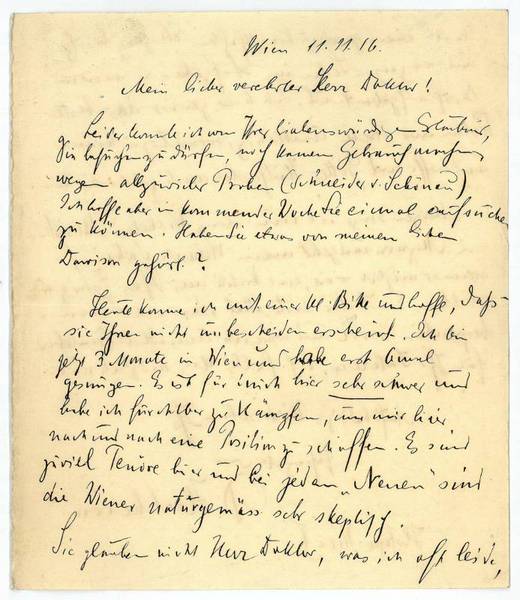 Wien 11.11.16.
Mein lieber verehrter Herr Doktor!
Leider konnte ich von Ihrer liebenswürdigen Erlaubnis,
Sie besuchen zu dürfen, noch keinen Gebrauch machen
wegen allzuvieler Proben (Schneider v. Schönau)
Ich hoffe aber in kommender Woche Sie einmal aufsuchen
zu können. Haben Sie etwas von meinem lieben
Dawison gehört?
Heute komme ich mit einer kl. Bitte und hoffe, dass
sie Ihnen nicht unbescheiden erscheint. Ich bin
jetzt 3 Monate in Wien und habe erst 6 mal
gesungen. Es ist für mich hier sehr schwer und
habe ich furchtbar zu kämpfen, um mir hier
nach und nach eine Position zu schaffen. Es sind
zuviel Tenöre hier und bei jedem „Neuen" sind
die Wiener naturgemäss sehr skeptisch.
Sie glauben nicht Herr Doktor, was ich oft leide,